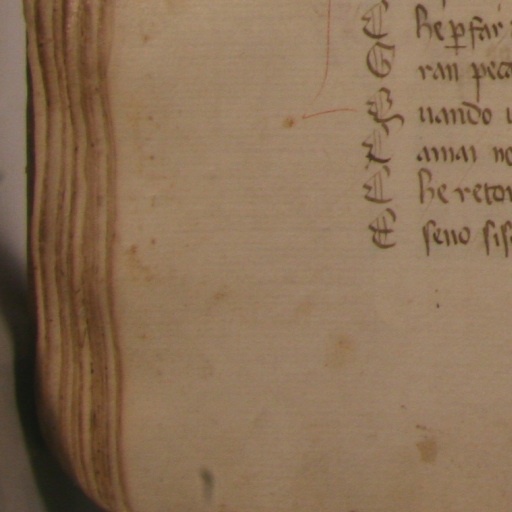 C he ꝑ far
G ran pecca
Q uando u
C amai no
C he retor
E seno sis